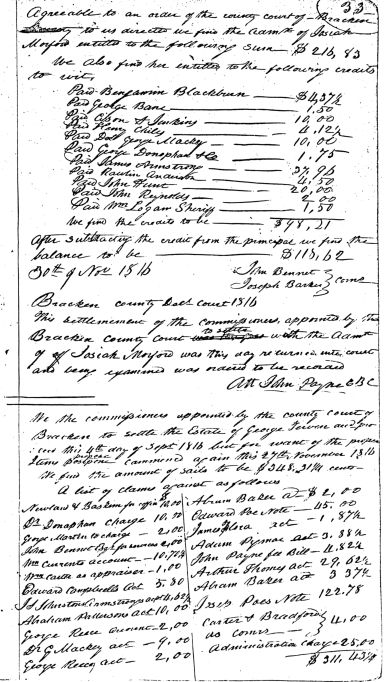 33
Agreeable to an order of the county court of Bracken
to us directe we find the Admtx of Josiah
Morford entitled to the following sum $213,83
We also find her entitled to the following credits
to wit,
Paid Benjamin Blackburn $4,37½
Paid George Bane 1,50
Paid & Jenkins 10,00
Paid Henry Chiles 4,12½
Paid Doct George Mackey 10,00
Paid George Donophan & Co 1,75
Paid James Armstrong 37,96
Paid Rawlin Anderson 4,50
Paid John Hunt 20,00
Paid John Reynolds 2,00
Paid Wm Logan Sheriff 1,50
We find the credits to be $98,21
After substracting the credit from the principal we find the
balance to be $115,62
30th of Nov 1816
John Bennet
Joseph Barker Coms
Bracken county Oct court 1816
This settlement of the commissioners, appointed by the
Bracken county court to settle with the Admt
of of Josiah Morford was this day returned into court
and being examined was ordered to be recorded
Att John Payne C B C
We the commissioners appointed by the county court of
Bracken to settle the Estate of George
this 4th day of Sept 1816 but for want of the proper
Items postpone commenced again this 27th November 1816
We find the amount of sails to be $348.31¼ cents
A list of claims against as follows
Newland & Baskem for coffin $10,00
Dr Donophan charge 10,50
George Martin to charge 2,00
John Bennet 6,00
Wm Currents account 10,75
Wm Carter as appraiser 1,00
Edward Campbells Act 5.50
Js Johnston
Abraham Pattersons act 10,00
George Reese Amount 2,00
Dr G Mackey act 9,00
George Reecy act 2,00
Abram Baker at $2,00
Edward Poe Note 45,00
James Hora act 1,87½
Adam Pymac act 3.38½
John Payne fee Bill 4,82½
Arthur Thomes act 29,62½
Abram Baker act 3 37½
Isbys Poes Note 122.78
Carter & Bradford
as comrs 4,00
Administration charge 25,00
$311,43¾